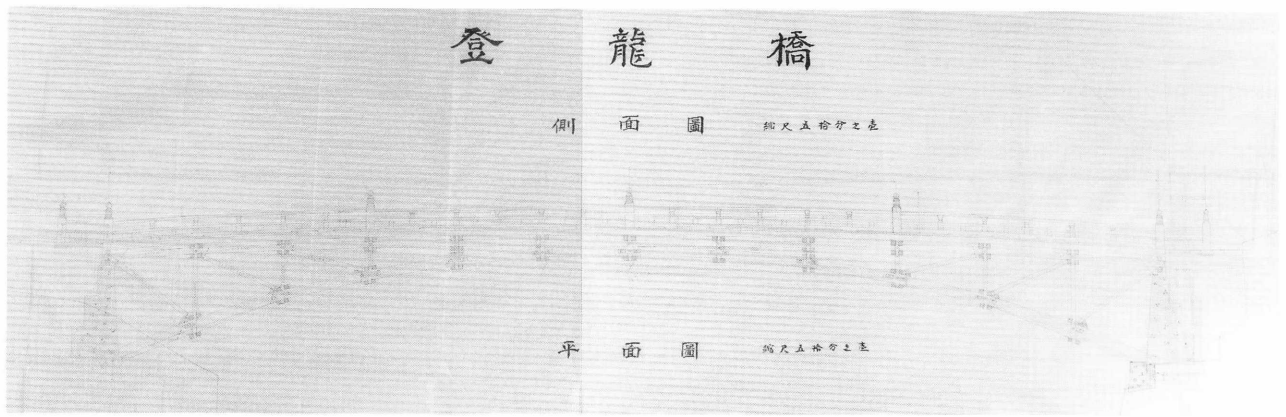 登龍橋
側面圖 縮尺五拾分之壱
平面圖 縮尺五拾分之壱